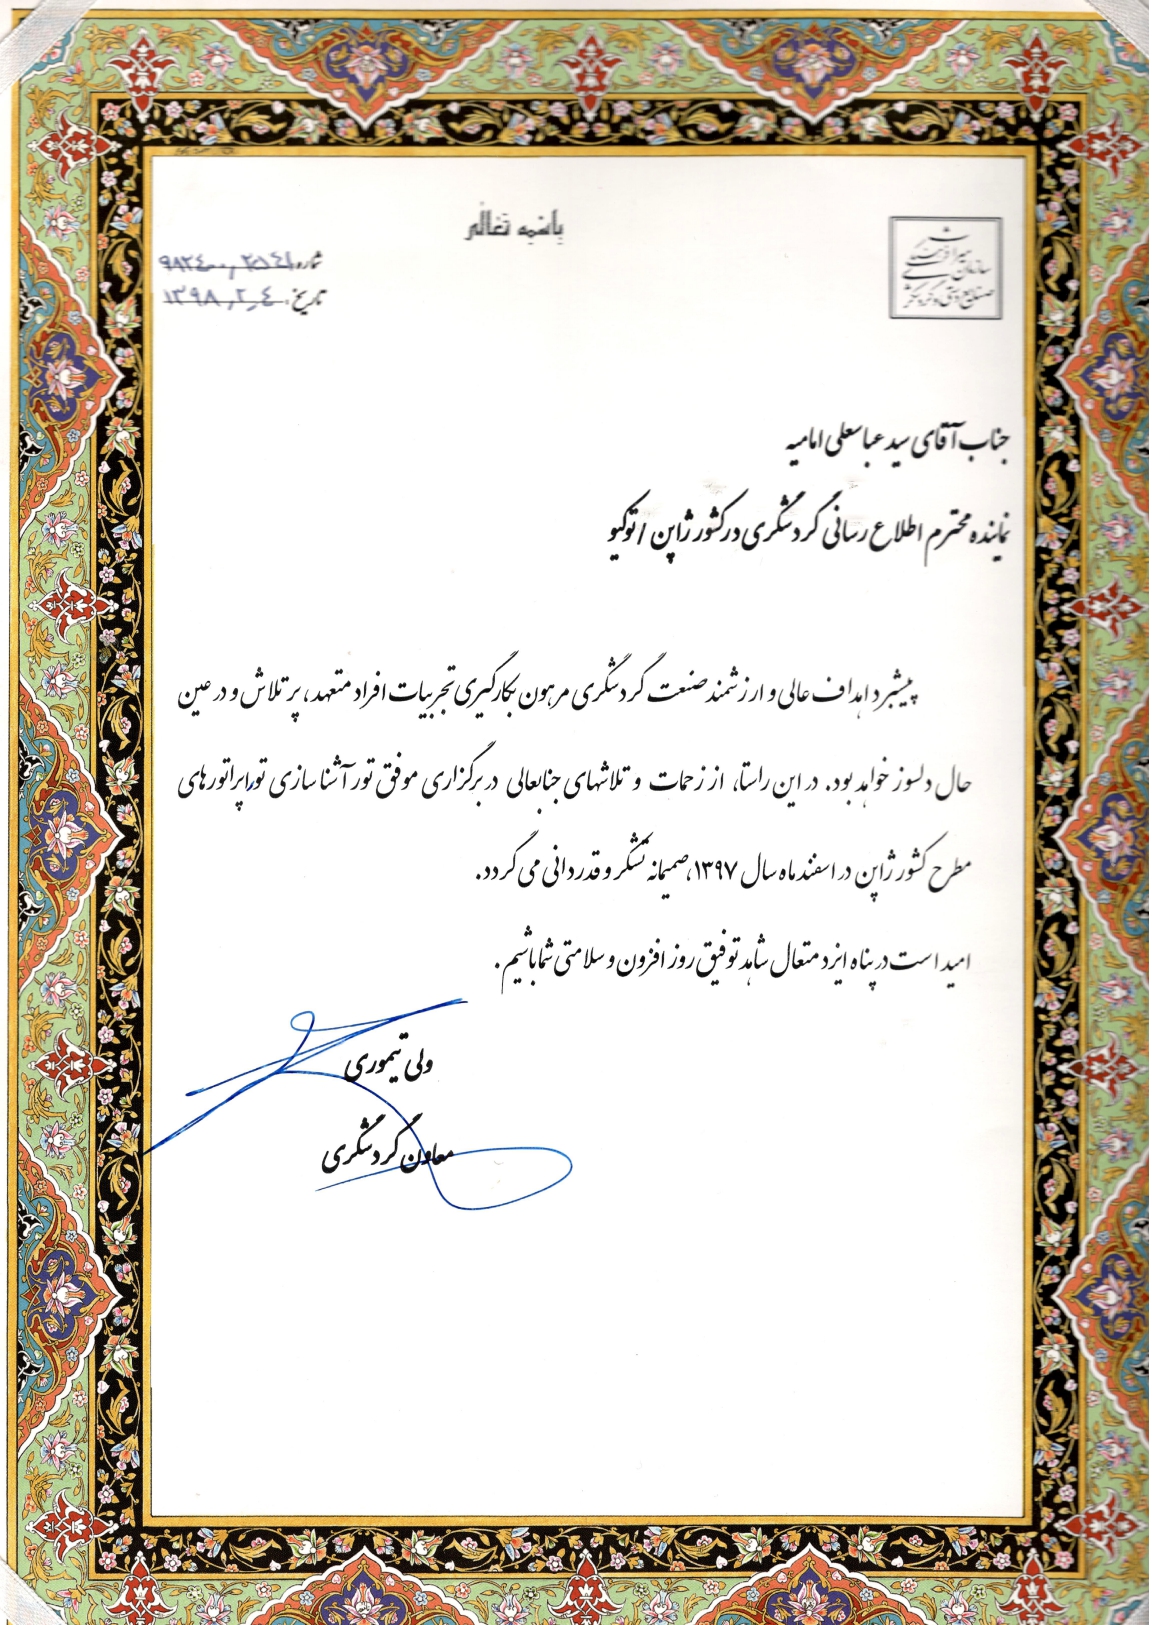 باسمه تعالی
سازمان میراث فرهنگی
صنایع دستی و گردشگری
شماره:
تاریخ: ۱۳۹۸,۲,۴
جناب آقای سید عباسعلی امامیه
نماینده محترم اطلاع رسانی گردشگری در کشور ژاپن / توکیو
پیشبرد اهداف عالی و ارزشمند صنعت گردشگری مرهون بکارگیری تجربیات افراد متعهد، پر تلاش و در عین
حال دلسوز خواهد بود. در این راستا، از زحمات و تلاشهای جنابعالی در برگزاری موفق تور آشنا سازی توراپراتورهای
مطرح کشور ژاپن در اسفند ماه سال ۱۳۹۷، صمیمانه تشکر و قدردانی می گردد.
امید است در پناه ایزد متعال شاهد توفیق روز افزون و سلامتی شما باشیم.
ولی تیموری
معاون گردشگری